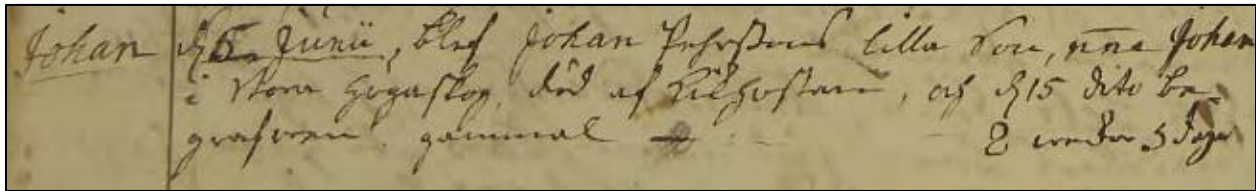 Johan d 5 Junii, blef Johan Pehrssons lilla Son, nna Johan
i Stora Högaskog, död af Kikhostan, och d 15 dito be-
grafwen. gammal 2 weckor 5 dagar